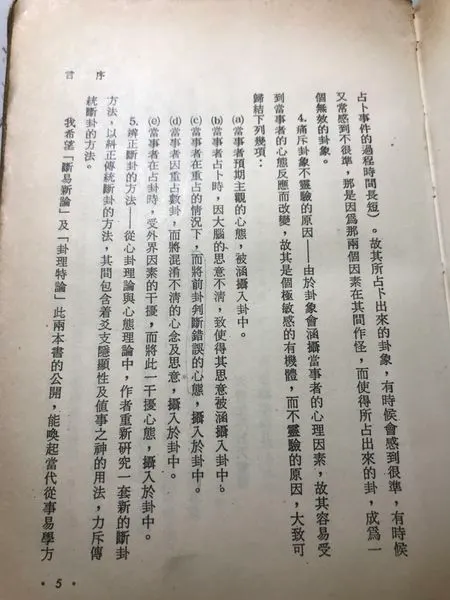 序言
占卜事件的過程時間長短）。故其所占卜出來的卦象，有時候會感到很準，有時候
又常感到不很準，那是因爲那兩個因素在其間作怪，而使得所占出來的卦，成爲一
個無效的卦象。
4.痛斥卦象不靈驗的原因——由於卦象會涵攝當事者的心理因素，故其容易受
到當事者的心態反應而改變，故其是個極敏感的有機體，而不靈驗的原因，大致可
歸結下列幾項：
(a)當事者預期主觀的心態，被涵攝入卦中。
(b)當事者占卜時，因大腦的思意不清，致使得其思意被涵攝入卦中。
(c)當事者在重占的情況下，而將前卦判斷錯誤的心態，攝入於卦中。
(d)當事者因重占數卦，而將混淆不清的心念及思意，攝入於卦中。
(e)當事者在占卦時，受外界因素的干擾，而將此一干擾心態，攝入於卦中。
5.辨正斷卦的方法——從心卦理論與心態理論中，作者重新研究一套新的斷卦
方法，以糾正傳統斷卦的方法，其間包含着爻支隱顯性及値事之神的用法，力斥傳
統斷卦的方法。
我希望「斷易新論」及「卦理特論」此兩本書的公開，能喚起當代從事易學方
•5•